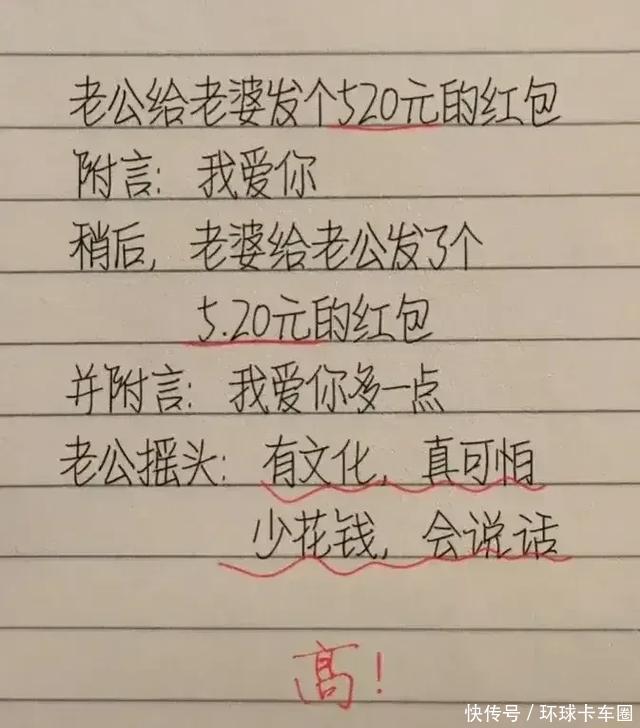 老公给老婆发个520元的红包
附言：我爱你
稍后，老婆给老公发了个
5.20元的红包
并附言：我爱你多一点
老公摇头：有文化，真可怕
少花钱，会说话
高！
快传号／环球卡车圈